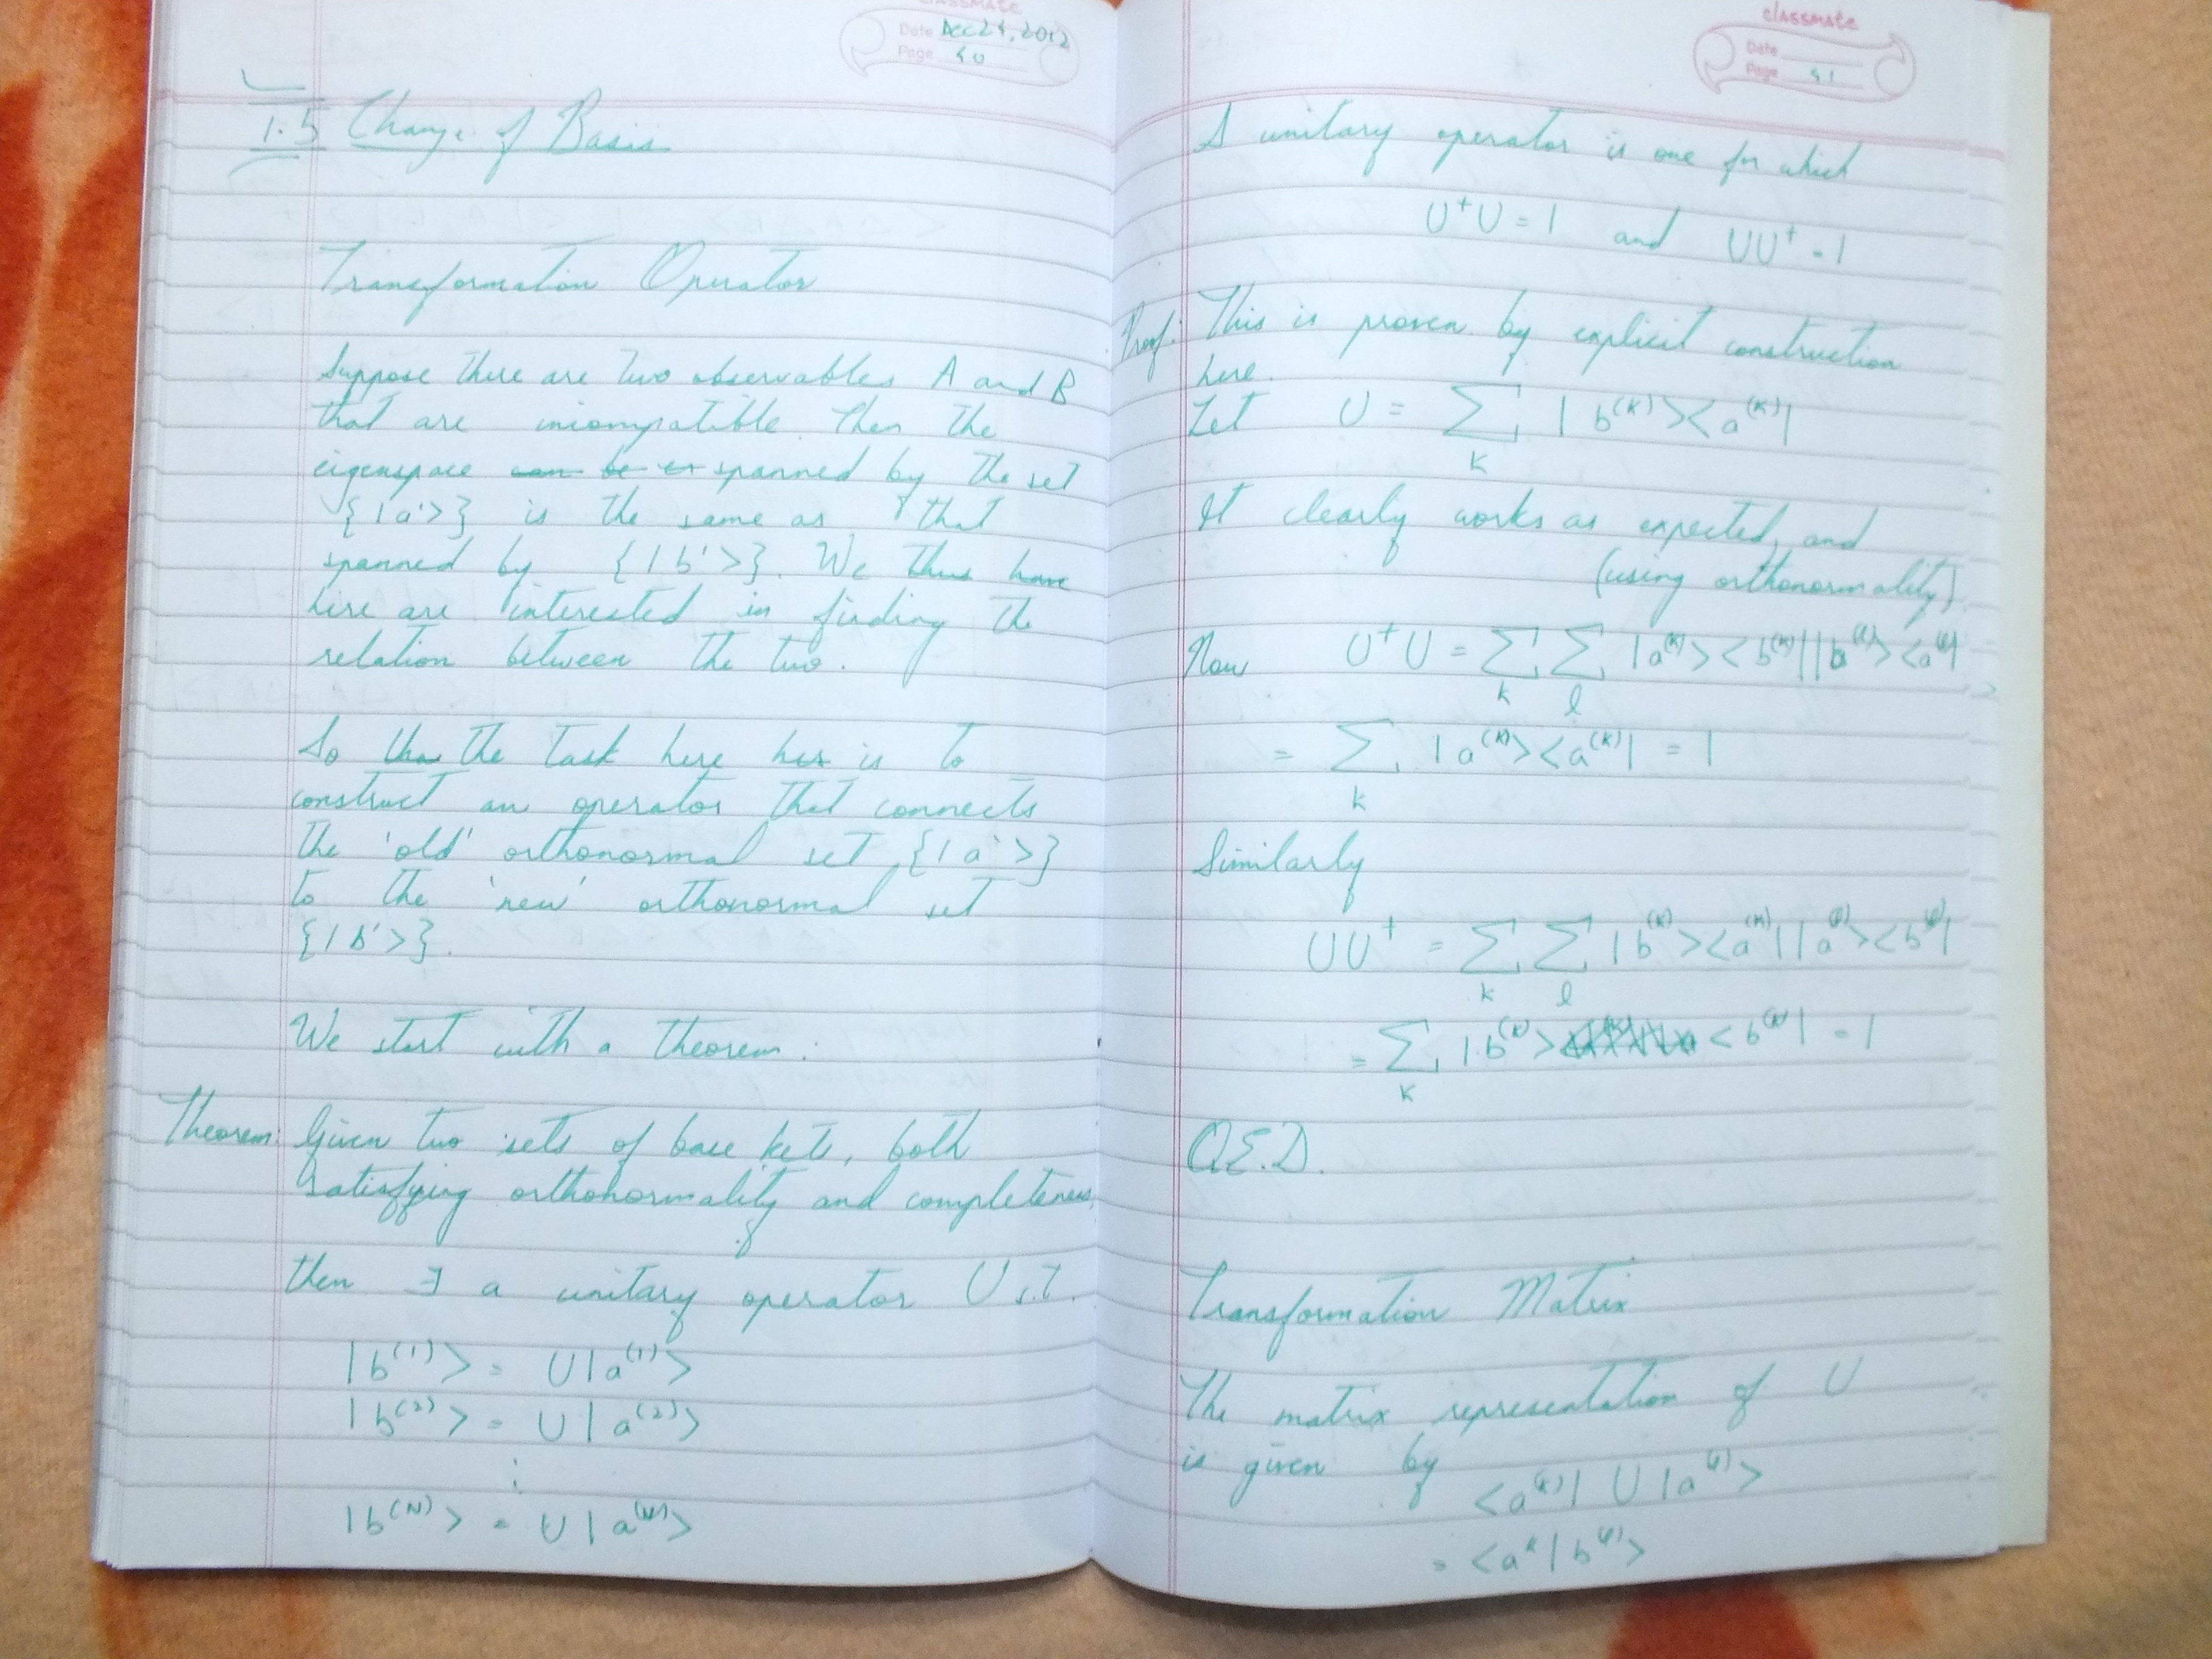 classmate
Date Dec 24, 2012
Page 40
1.5 Change of Basis
Transformation Operator
Suppose there are two observables A and B
that are incompatible. Then the
eigenspace can be spanned by the set
{|a'>} is the same as that
spanned by {|b'>}. We thus have
here are interested in finding the
relation between the two.
So the task here is to
construct an operator that connects
the 'old' orthonormal set {|a'>}
to the 'new' orthonormal set
{|b'>}.
We start with a theorem:
Theorem: Given two sets of base kets, both
satisfying orthonormality and completeness,
then ∃ a unitary operator U s.t.
|b⁽¹⁾> = U|a⁽¹⁾>
|b⁽²⁾> = U|a⁽²⁾>
⋮
|b⁽ᴺ⁾> = U|a⁽ᴺ⁾>
classmate
Date
Page 41
A unitary operator is one for which
U†U = 1 and UU† = 1
Proof: This is proven by explicit construction
here.
Let U = ∑ₖ |b⁽ᵏ⁾><a⁽ᵏ⁾|
It clearly works as expected, and
(using orthonormality)
Now U†U = ∑ₖ ∑ₗ |a⁽ᵏ⁾><b⁽ᵏ⁾||b⁽ˡ⁾><a⁽ˡ⁾|
= ∑ₖ |a⁽ᵏ⁾><a⁽ᵏ⁾| = 1
Similarly
UU† = ∑ₖ ∑ₗ |b⁽ᵏ⁾><a⁽ᵏ⁾||a⁽ˡ⁾><b⁽ˡ⁾|
= ∑ₖ |b⁽ᵏ⁾><b⁽ᵏ⁾| = 1
Q.E.D.
Transformation Matrix
The matrix representation of U
is given by
<a⁽ᵏ⁾| U |a⁽ˡ⁾>
= <aᵏ|b⁽ˡ⁾>